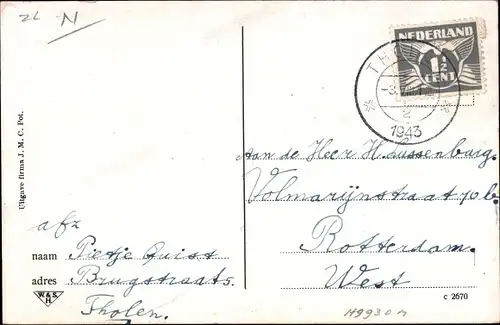 ZL N
NEDERLAND
1½
CENT
THOLEN
2
1943
Uitgave firma J. M. C. Pot.
Aan de Heer H. Dussenburg.
Volmarijnstraat 70b.
Rotterdam.
West
afz
naam Pietje Quist
adres Brugstraat 5.
Tholen.
W. & S.
H
c 2670
H9930m